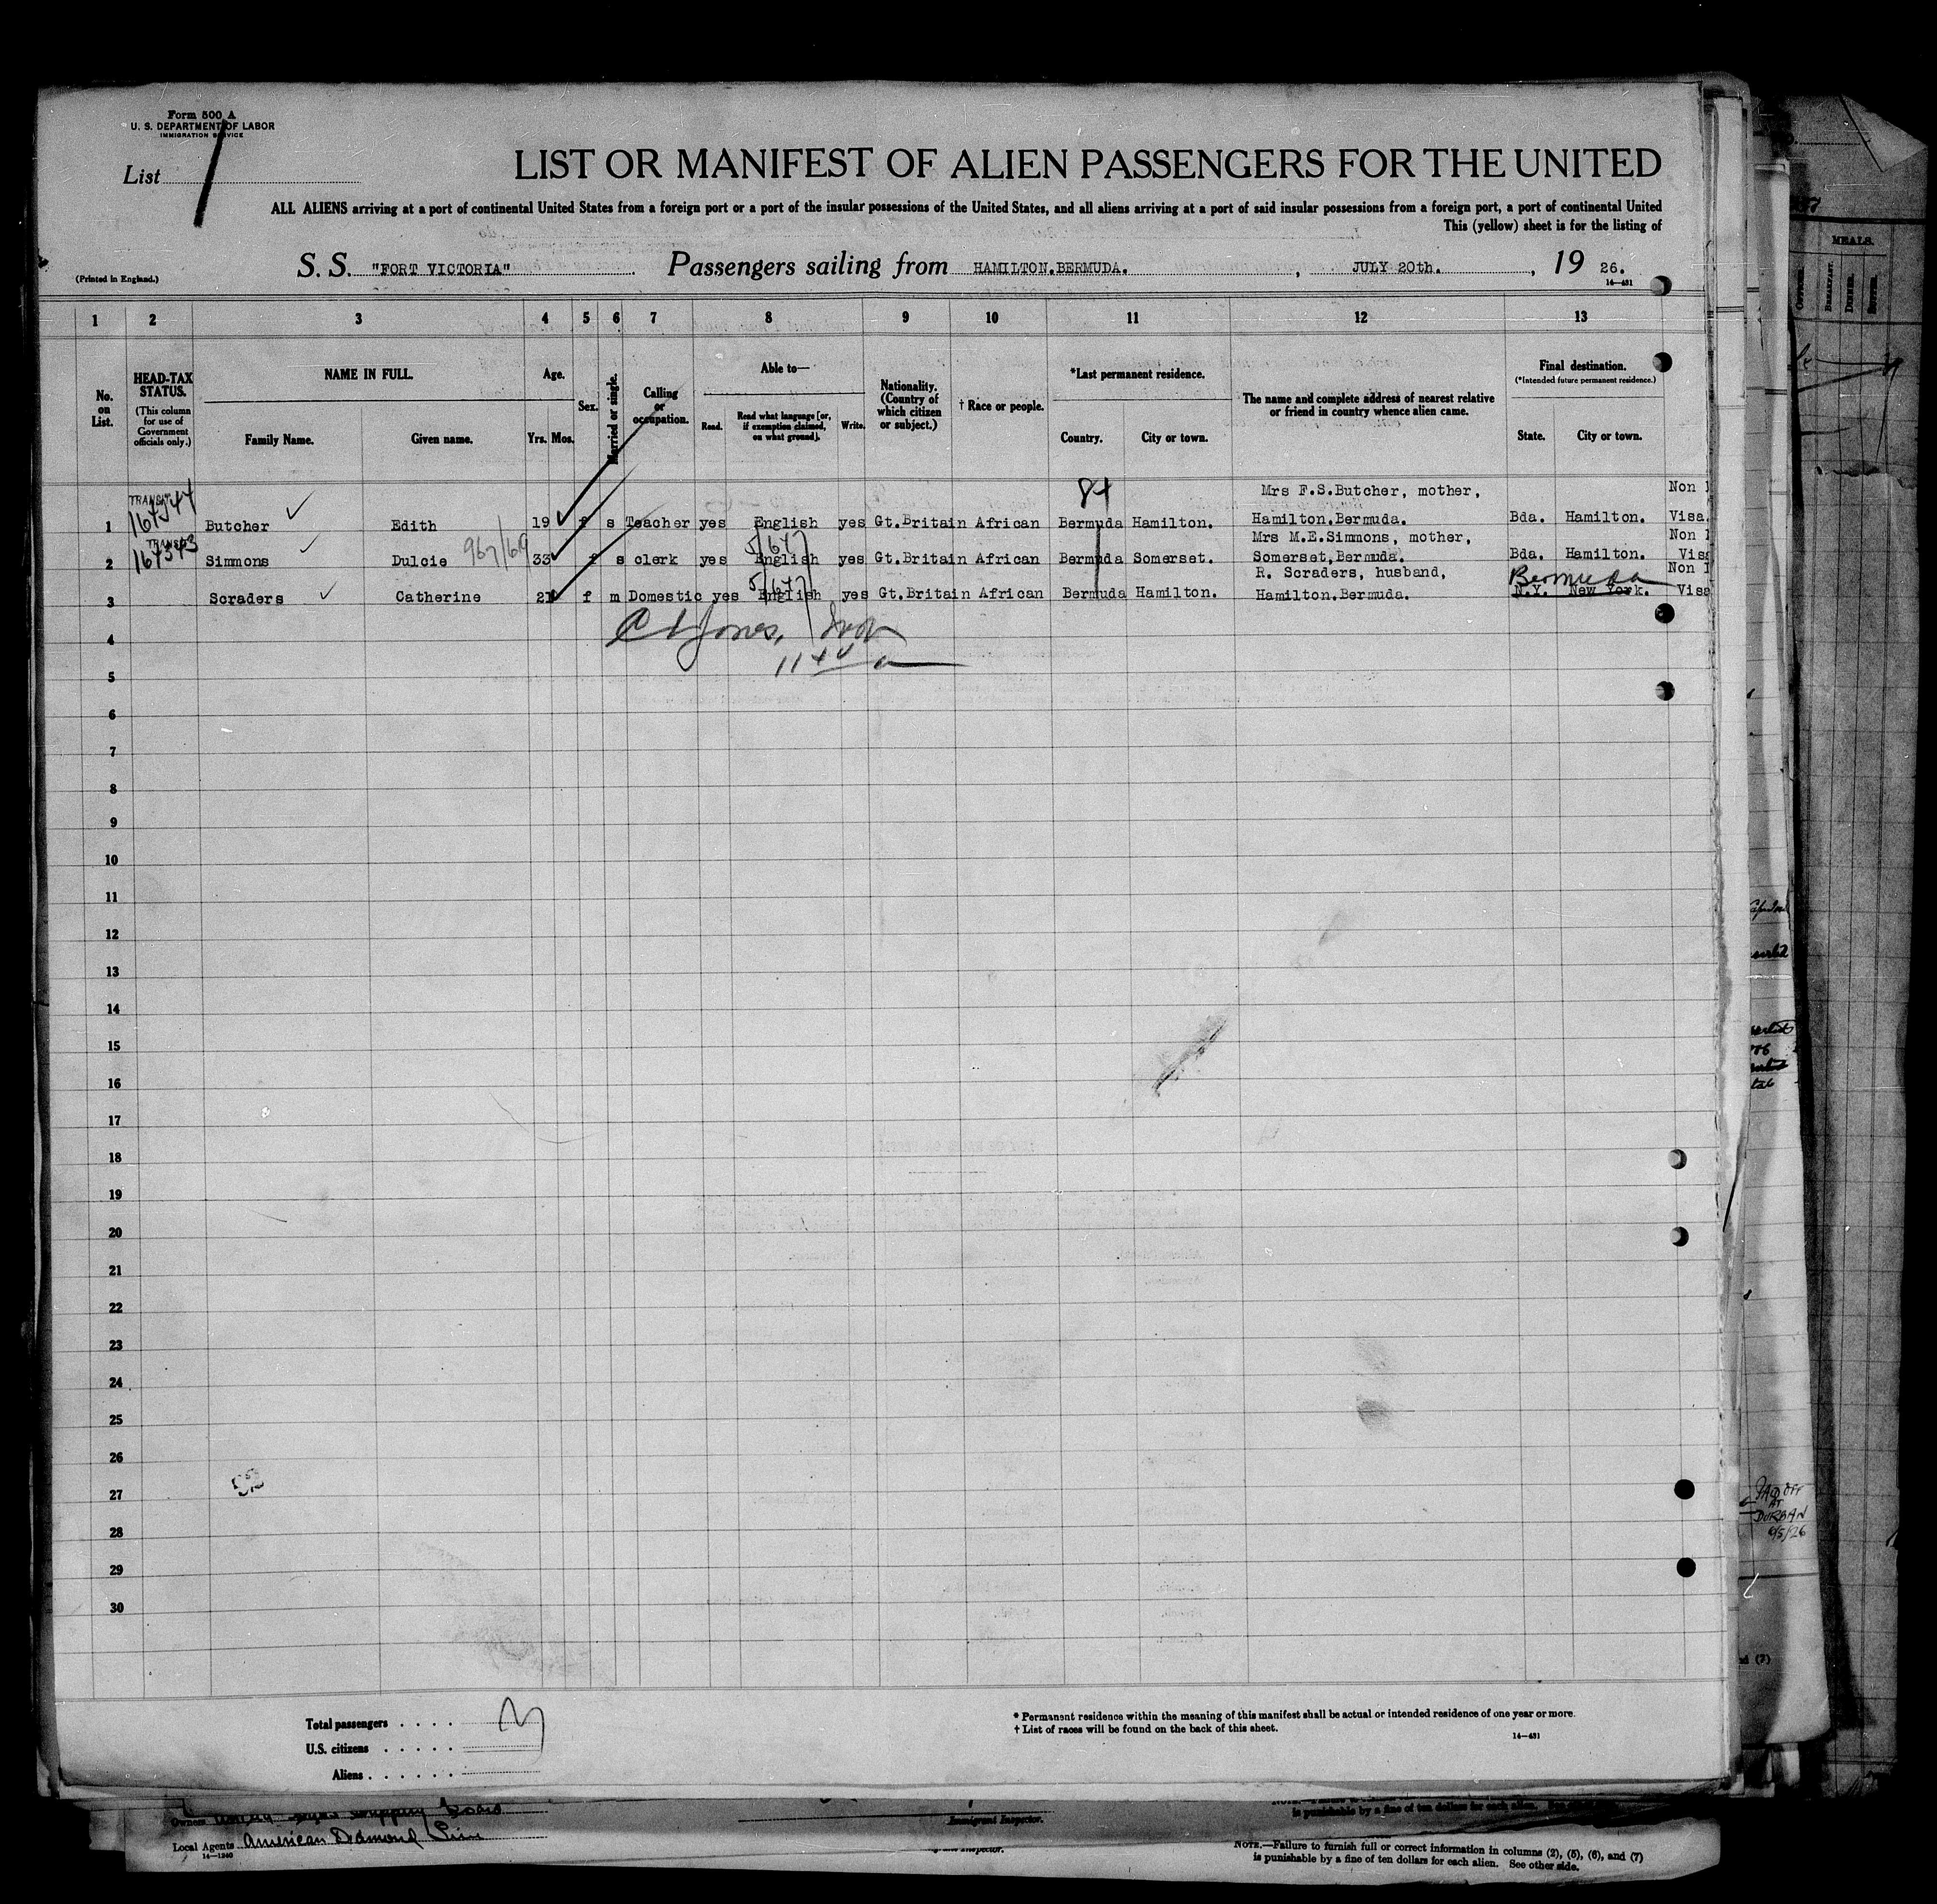 Form 500 A
U. S. DEPARTMENT OF LABOR
IMMIGRATION SERVICE
List
LIST OR MANIFEST OF ALIEN PASSENGERS FOR THE UNITED
ALL ALIENS arriving at a port of continental United States from a foreign port or a port of the insular possessions of the United States, and all aliens arriving at a port of said insular possessions from a foreign port, a port of continental United
This (yellow) sheet is for the listing of
(Printed in England.)
S. S. "FORT VICTORIA" Passengers sailing from HAMILTON.BERMUDA. , JULY 20th. , 19 26.
14—431
1 2 3 4 5 6 7 8 9 10 11 12 13
No. on List.
HEAD-TAX STATUS.
(This column for use of Government officials only.)
NAME IN FULL.
Family Name. Given name.
Age.
Yrs. Mos.
Sex.
Married or single.
Calling or occupation.
Able to—
Read. Read what language [or, if exemption claimed, on what ground]. Write.
Nationality. (Country of which citizen or subject.)
† Race or people.
*Last permanent residence.
Country. City or town.
The name and complete address of nearest relative or friend in country whence alien came.
Final destination.
(*Intended future permanent residence.)
State. City or town.
TRANSIT 84 Mrs F.S.Butcher, mother, Non
1 Butcher Edith 19 f s Teacher yes English yes Gt.Britain African Bermuda Hamilton. Hamilton.Bermuda. Bda. Hamilton. Visa.
TRANSIT 167343 967/69 5/647 Mrs M.E.Simmons, mother, Non
2 Simmons Dulcie 33 f s clerk yes English yes Gt.Britain African Bermuda Somerset. Somerset,Bermuda. Bda. Hamilton. Visa
5/647 R. Scraders, husband, Bermuda Non
3 Scraders Catherine 21 f m Domestic yes English yes Gt.Britain African Bermuda Hamilton. Hamilton.Bermuda. N.Y. New York. Visa
4
5
6
7
8
9
10
11
12
13
14
15
16
17
18
19
20
21
22
23
24
25
26
27
28
29
30
Total passengers
U.S. citizens
Aliens
* Permanent residence within the meaning of this manifest shall be actual or intended residence of one year or more.
† List of races will be found on the back of this sheet.
14—431
Owners
Immigrant Inspector.
Local Agents American Diamond Line
14—1240
NOTE.—Failure to furnish full or correct information in columns (2), (5), (6), and (7)
is punishable by a fine of ten dollars for each alien. See other side.
MEALS.
BREAKFAST.
DINNER.
SUPPER.
PAID OFF
AT
DURBAN
6/5/26